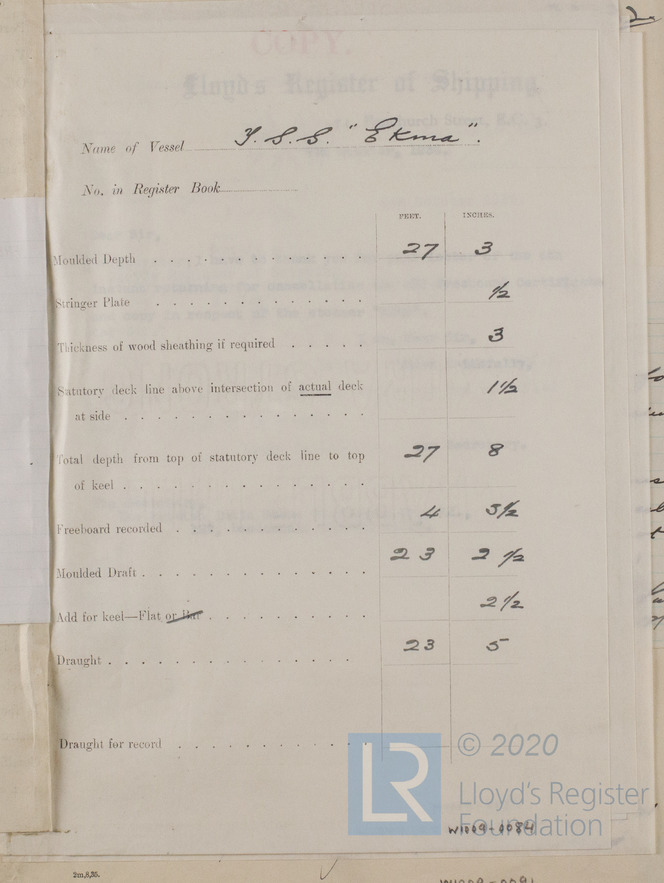 2.
COPY.
Lloyd's Register of Shipping
Name of Vessel T.S.S. "Ekma".
No. in Register Book
FEET. INCHES.
Moulded Depth 27 3
Stringer Plate 1/2
Thickness of wood sheathing if required 3
Statutory deck line above intersection of actual deck
at side 1 1/2
Total depth from top of statutory deck line to top
of keel 27 8
Freeboard recorded 4 5 1/2
Moulded Draft 23 2 1/2
Add for keel—Flat or Bar 2 1/2
Draught 23 5
Draught for record
LR
© 2020
Lloyd's Register
Foundation
W1009-0084
2m,8,35.